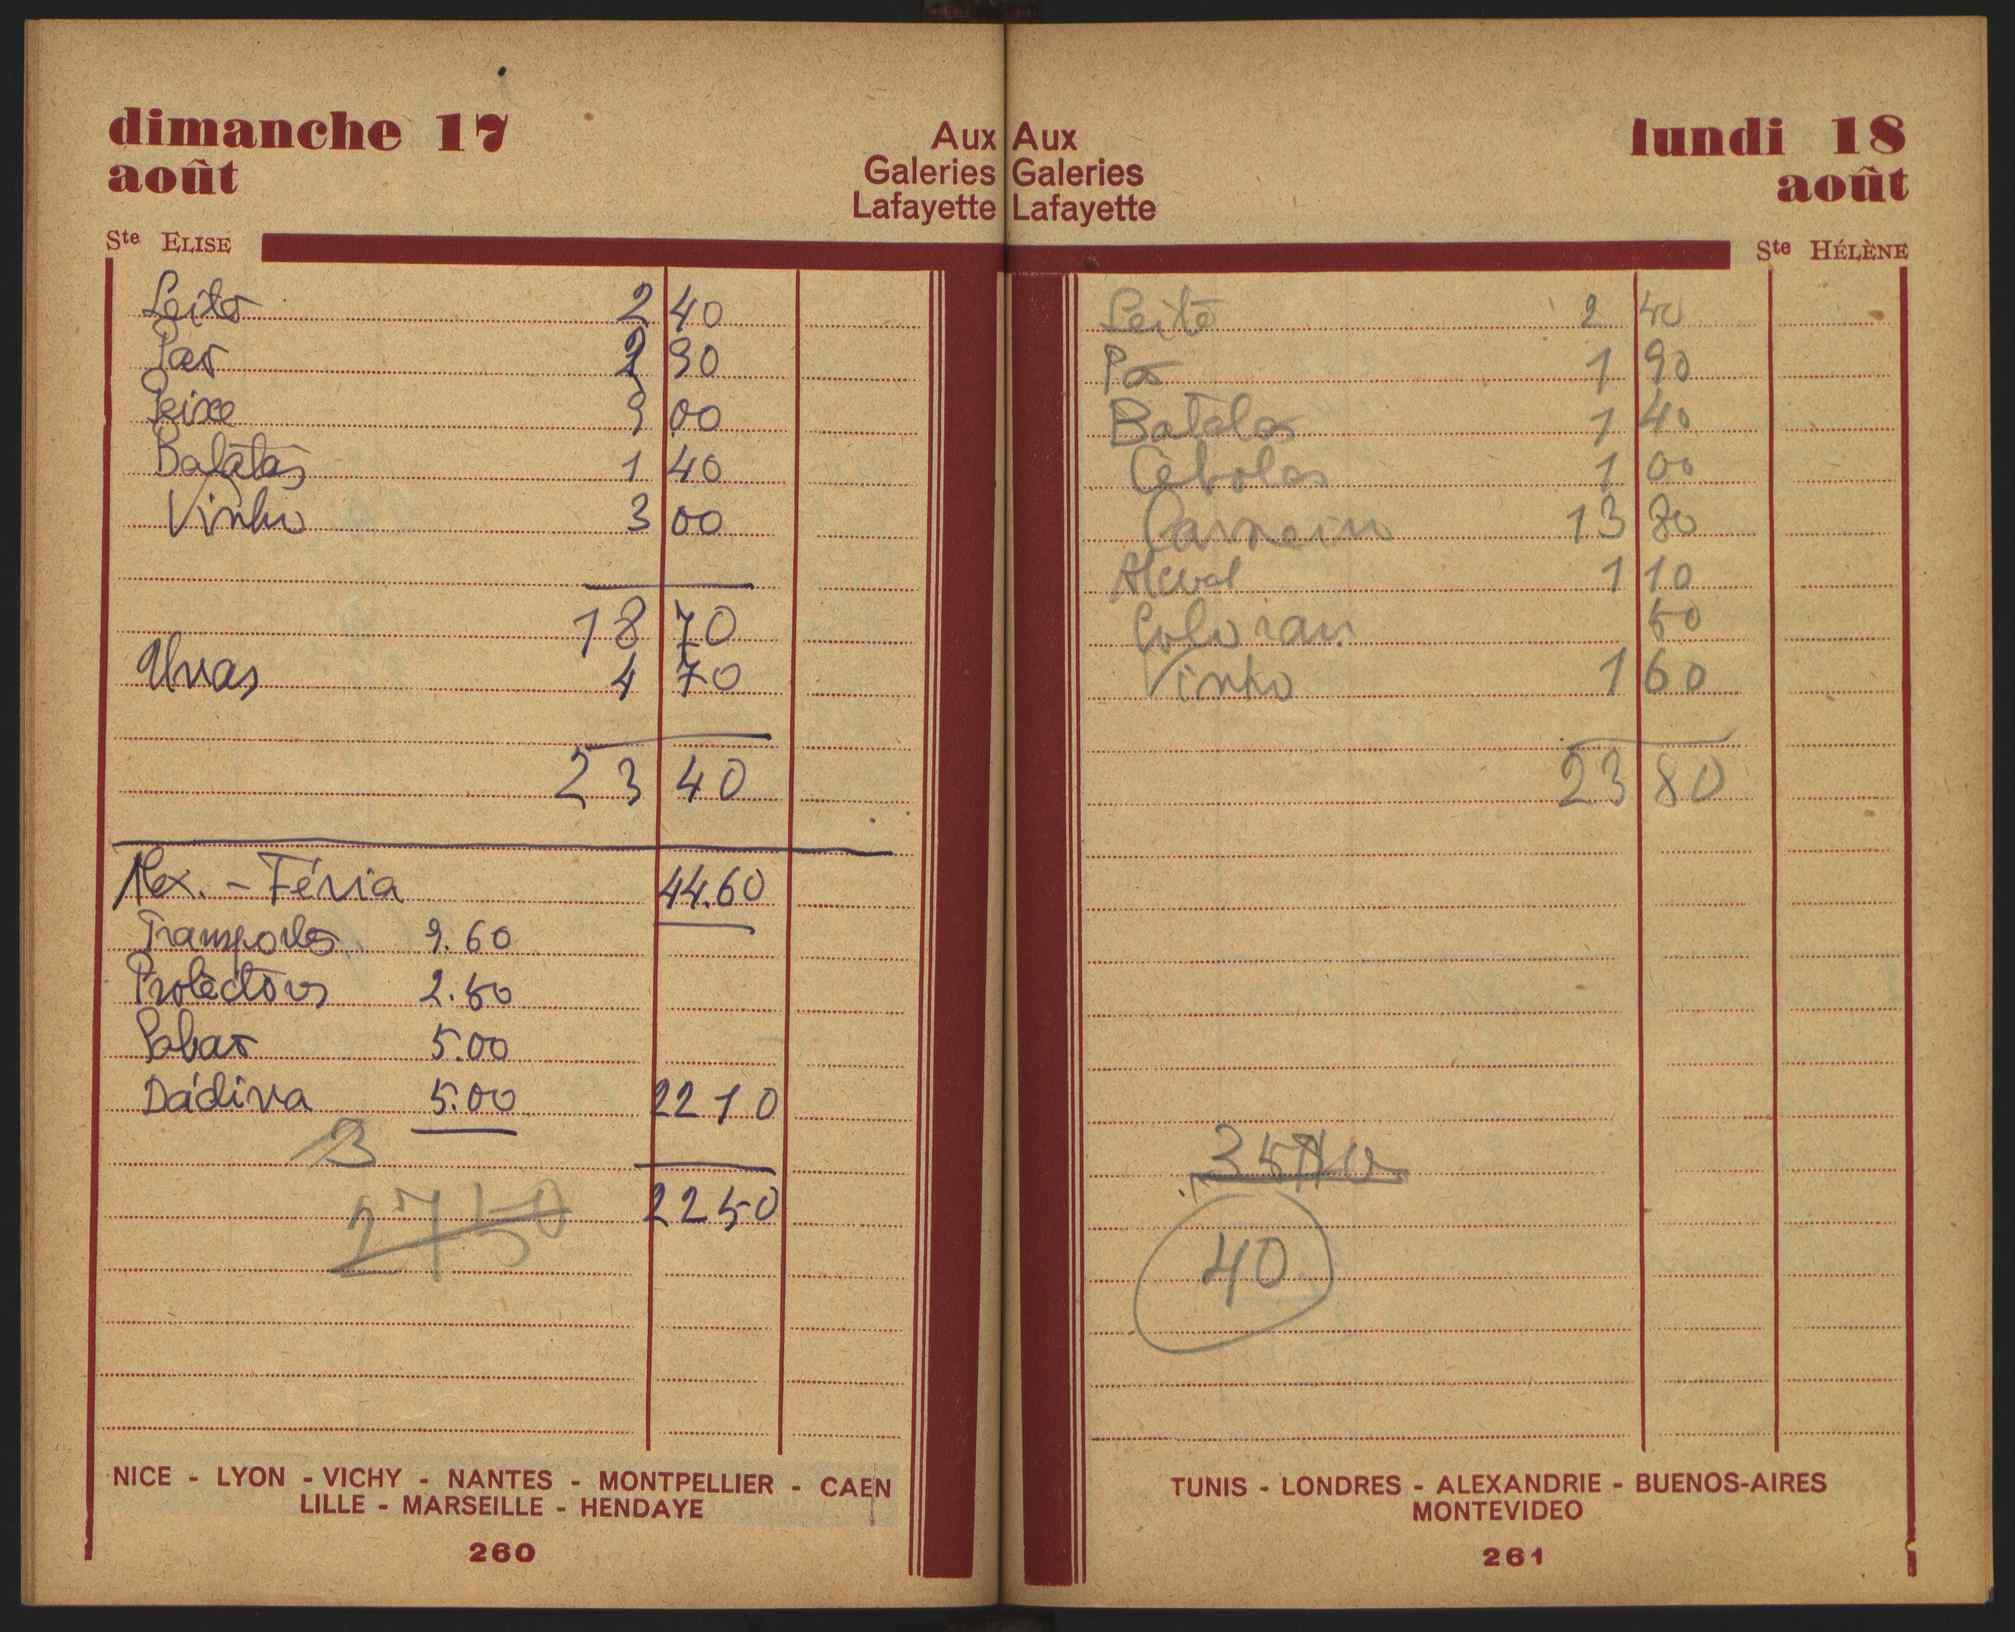 dimanche 17
août
Aux
Galeries
Lafayette
Ste ELISE
Leite 2 40
Pão 2 90
Peixe 9 00
Batatas 1 40
Vinho 3 00
18 70
Uvas 4 70
23 40
Alex. - Féria 44.60
Transportes 9.60
Protectors 2.50
Sabão 5.00
Dádiva 5.00 22 10
3
22 50
27 50
NICE - LYON - VICHY - NANTES - MONTPELLIER - CAEN
LILLE - MARSEILLE - HENDAYE
260
Aux
Galeries
Lafayette
lundi 18
août
Ste HÉLÈNE
Leite 2 40
Pão 1 90
Batatas 1 40
Cebolas 1 00
Carneiro 13 80
Alcool 1 10
50
Vinho 1 60
23 80
40
TUNIS - LONDRES - ALEXANDRIE - BUENOS-AIRES
MONTEVIDEO
261